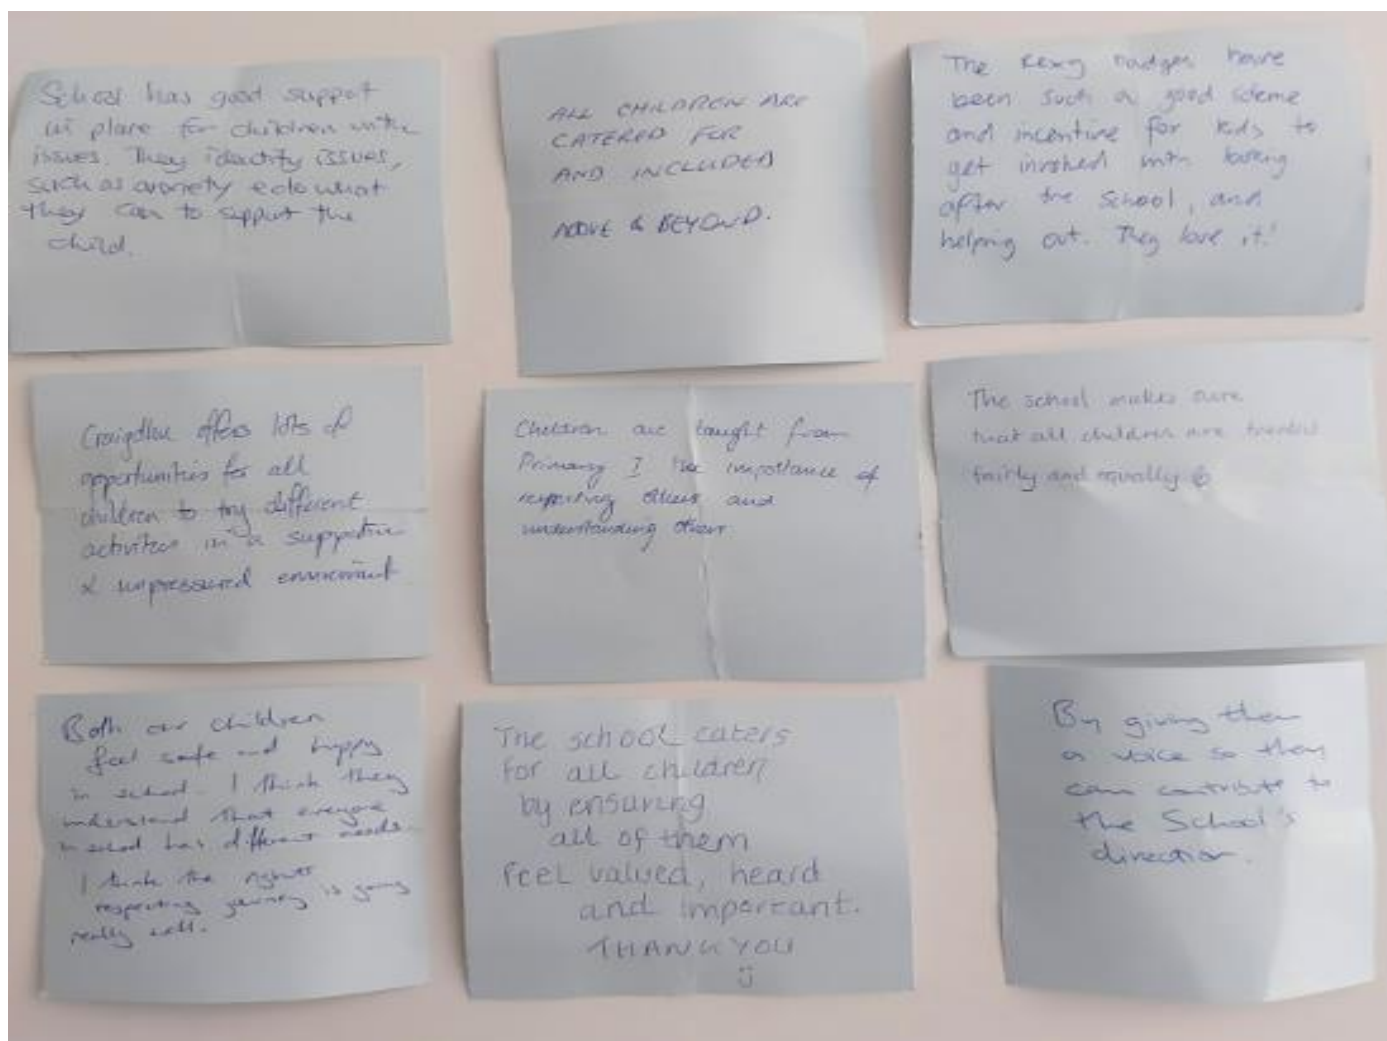 School has good support
in place for children with
issues. They identify issues,
such as anxiety & do what
they can to support the
child.
ALL CHILDREN ARE
CATERED FOR
AND INCLUDED
ABOVE & BEYOND.
The badges have
been such a good scheme
and incentive for kids to
get involved with looking
after the School, and
helping out. They love it!
Craigdhu offers lots of
opportunities for all
children to try different
activities in a supportive
& unpressured environment
Children are taught from
Primary 1 the importance of
respecting others and
understanding others
The school makes sure
that all children are treated
fairly and equally
Both our children
feel safe and happy
in school. I think they
understand that everyone
in school has different needs.
I think the rights
respecting journey is going
really well.
The school caters
for all children
by ensuring
all of them
feel valued, heard
and important.
THANK YOU
By giving them
a voice so they
can contribute to
the School's
direction.